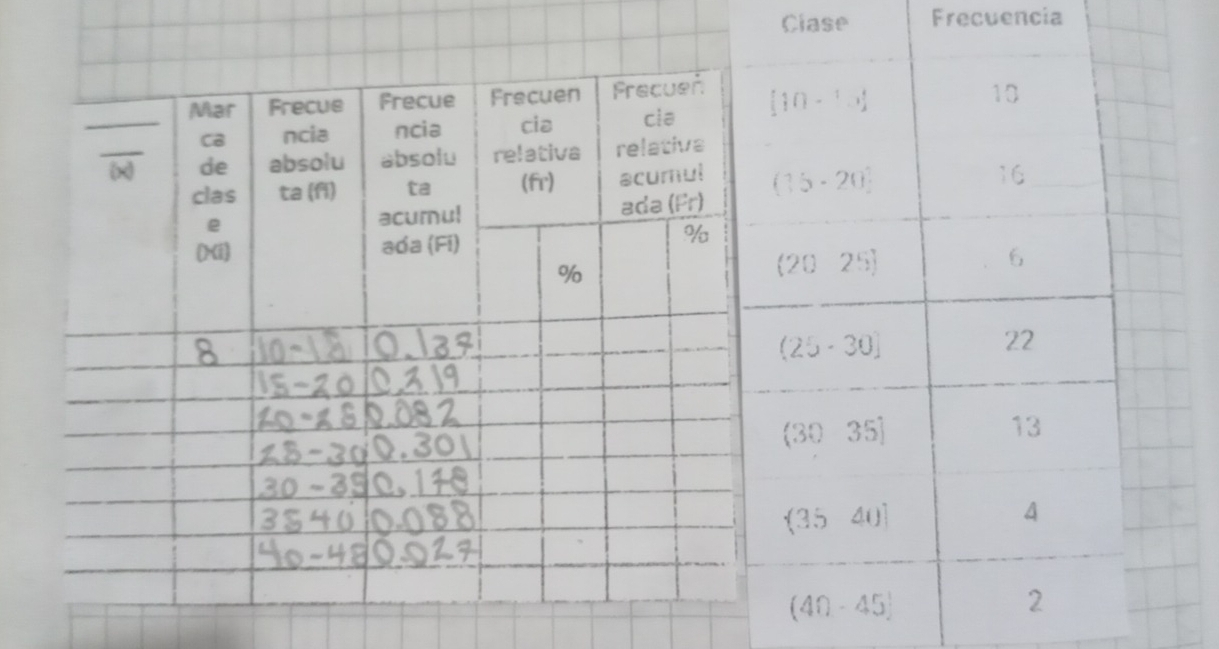 (x)
Mar
ca
de
clas
e
(Xi)
Frecue
ncia
absolu
ta (fi)
Frecue
ncia
absolu
ta
acumul
ada (Fi)
Frecuen
cia
relativa
(fr)
%
Frecuen
cia
relativa
acumul
ada (Fr)
%
8 10-15 0.137
15-20 0.219
20-25 0.082
25-30 0.301
30-35 0.178
35 40 0.088
40-45 0.027
Clase Frecuencia
[10 - 15] 10
(15 - 20] 16
(20 25] 6
(25 - 30] 22
(30 35] 13
(35 40] 4
(40 - 45] 2